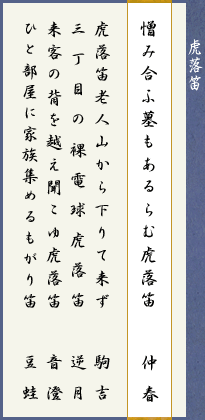 虎落笛
憎み合ふ墓もあるらむ虎落笛 仲春
虎落笛老人山から下りて来ず 駒吉
三丁目の裸電球虎落笛 逆月
来客の背を越え聞こゆ虎落笛 音澄
ひと部屋に家族集めるもがり笛 豆蛙